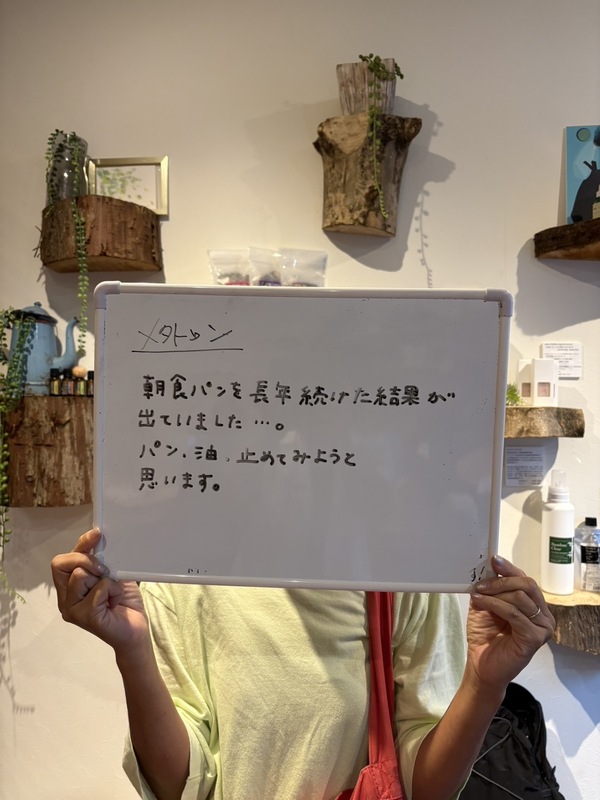 メタトロン
朝食パンを長年続けた結果が
出ていました…。
パン、油、止めてみようと
思います。